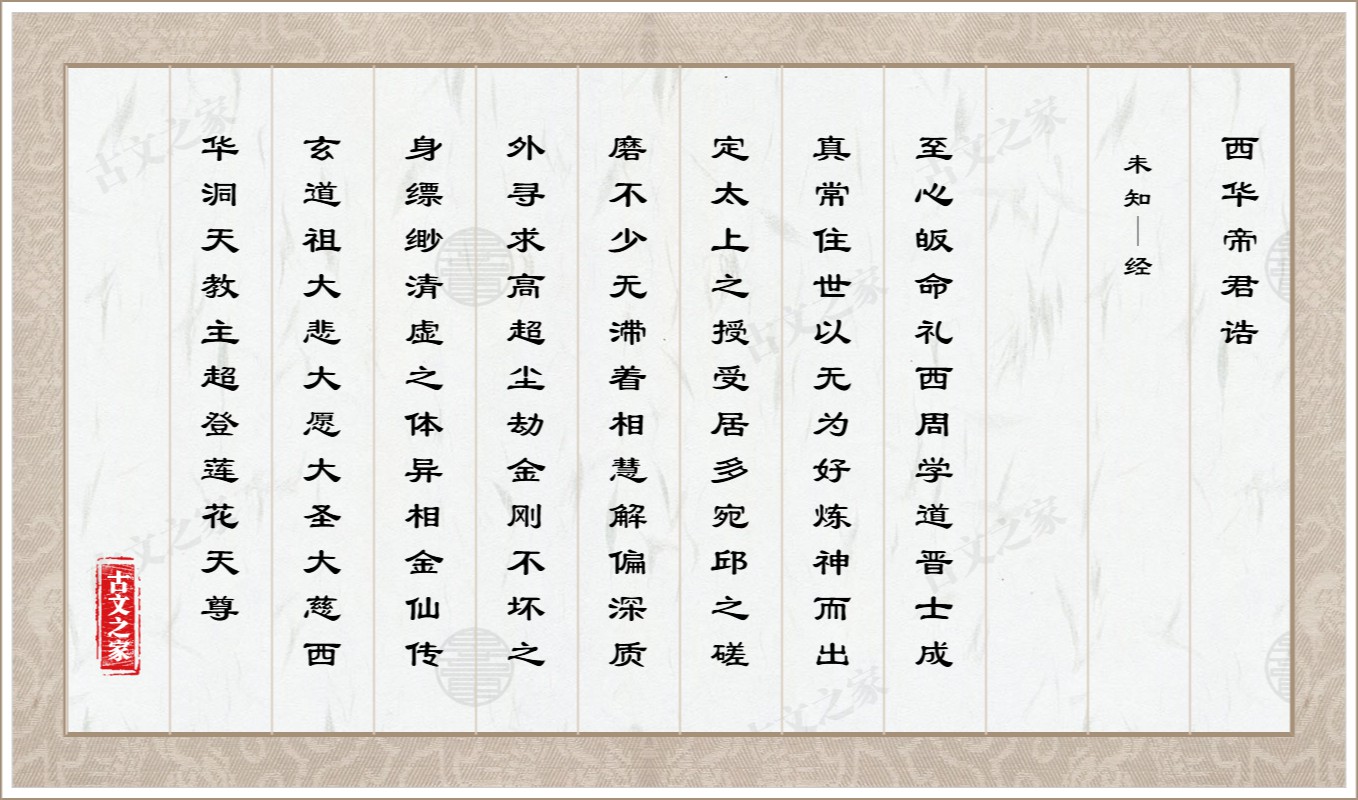 西华帝君诰
未知—经
至心皈命礼西周学道晋士成
真常住世以无为好炼神而出
定太上之授受居多宛邱之磋
磨不少无滞着相慧解偏深质
外寻求高超尘劫金刚不坏之
身缥缈清虚之体异相金仙传
玄道祖大悲大愿大圣大慈西
华洞天教主超登莲花天尊
古文之家
古文之家
古文之家
古文之家
古文之家
古文之家
古文之家